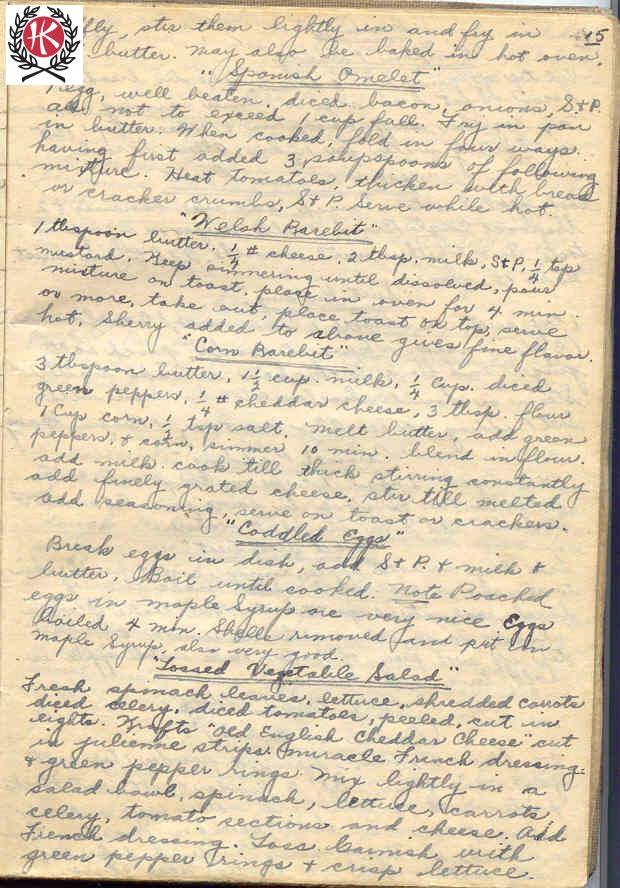 fly, stir them lightly in and fry in 15
butter. may also be baked in hot oven.
"Spanish Omelet"
1 egg, well beaten. diced bacon, onions, S+P.
all not to exceed 1 cup full. Fry in pan
in butter. When cooked, fold in four ways.
having first added 3 soupspoons of following
mixture. Heat tomatoes, thicken with bread
or cracker crumbs, S+P. Serve while hot.
"Welsh Rarebit"
1 tbspoon butter. 1/4 # cheese, 2 tbsp. milk, S+P, 1/4 tsp
mustard. Keep simmering until dissolved, pour
mixture on toast. place in oven for 4 min.
or more, take out. place toast on top, serve
hot. Sherry added to above gives fine flavor.
"Corn Rarebit"
3 tbspoon butter, 1 1/2 cup. milk, 1/4 Cup. diced
green peppers, 1/4 # cheddar cheese, 3 tbsp. flour
1 Cup corn, 1/2 tsp salt. melt butter, add green
peppers, + corn, simmer 10 min. blend in flour.
add milk. cook till thick stirring constantly
add finely grated cheese. stir till melted
add seasoning, serve on toast or crackers.
"Coddled Eggs"
Break eggs in dish, add S+P. + milk +
butter. Boil until cooked. Note Poached
eggs in maple Syrup are very nice Eggs
boiled 4 min. Shells removed and put in
maple Syrup, also very good.
"Tossed Vegetable Salad"
Fresh spinach leaves, lettuce, shredded carrots
diced celery, diced tomatoes, peeled, cut in
eights. Krafts "Old English Cheddar Cheese" cut
in julienne strips. miracle French dressing.
+ green pepper rings. Mix lightly in a
salad bowl, spinach, lettuce, carrots,
celery, tomato sections and cheese. Add
French dressing. Toss. Garnish with
green pepper rings + crisp lettuce.